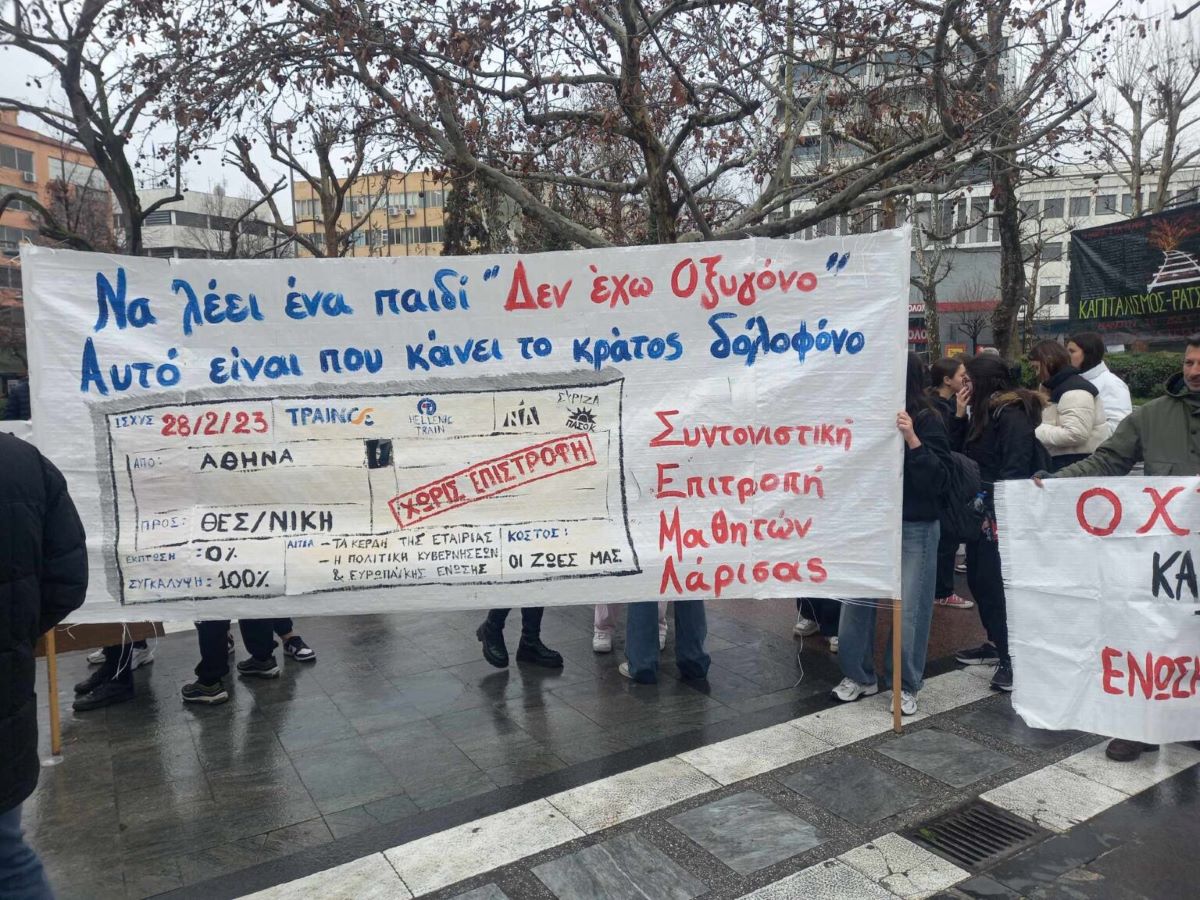 Να λέει ένα παιδί "Δεν έχω Οξυγόνο"
Αυτό είναι που κάνει το κράτος δολοφόνο
ΙΣΧΥΣ 28/2/23
ΤΡΑΙΝΟΣΕ
HELLENIC
TRAIN
ΝΔ
ΣΥΡΙΖΑ
ΠΑΣΟΚ
ΑΠΟ: ΑΘΗΝΑ
ΧΩΡΙΣ ΕΠΙΣΤΡΟΦΗ
ΠΡΟΣ: ΘΕΣ/ΝΙΚΗ
ΕΚΠΤΩΣΗ: 0%
ΣΥΓΚΑΛΥΨΗ: 100%
ΑΙΤΙΑ - ΤΑ ΚΕΡΔΗ ΤΗΣ ΕΤΑΙΡΙΑΣ
- Η ΠΟΛΙΤΙΚΗ ΚΥΒΕΡΝΗΣΕΩΝ
& ΕΥΡΩΠΑΪΚΗΣ ΕΝΩΣΗΣ
ΚΟΣΤΟΣ:
ΟΙ ΖΩΕΣ ΜΑΣ
Συντονιστική
Επιτροπή
Μαθητών
Λάρισας
ΚΑΠΙΤΑΛΙΣΜΟΣ-ΡΑΤΣ
ΟΧ
ΚΑ
ΕΝΩΣΗ